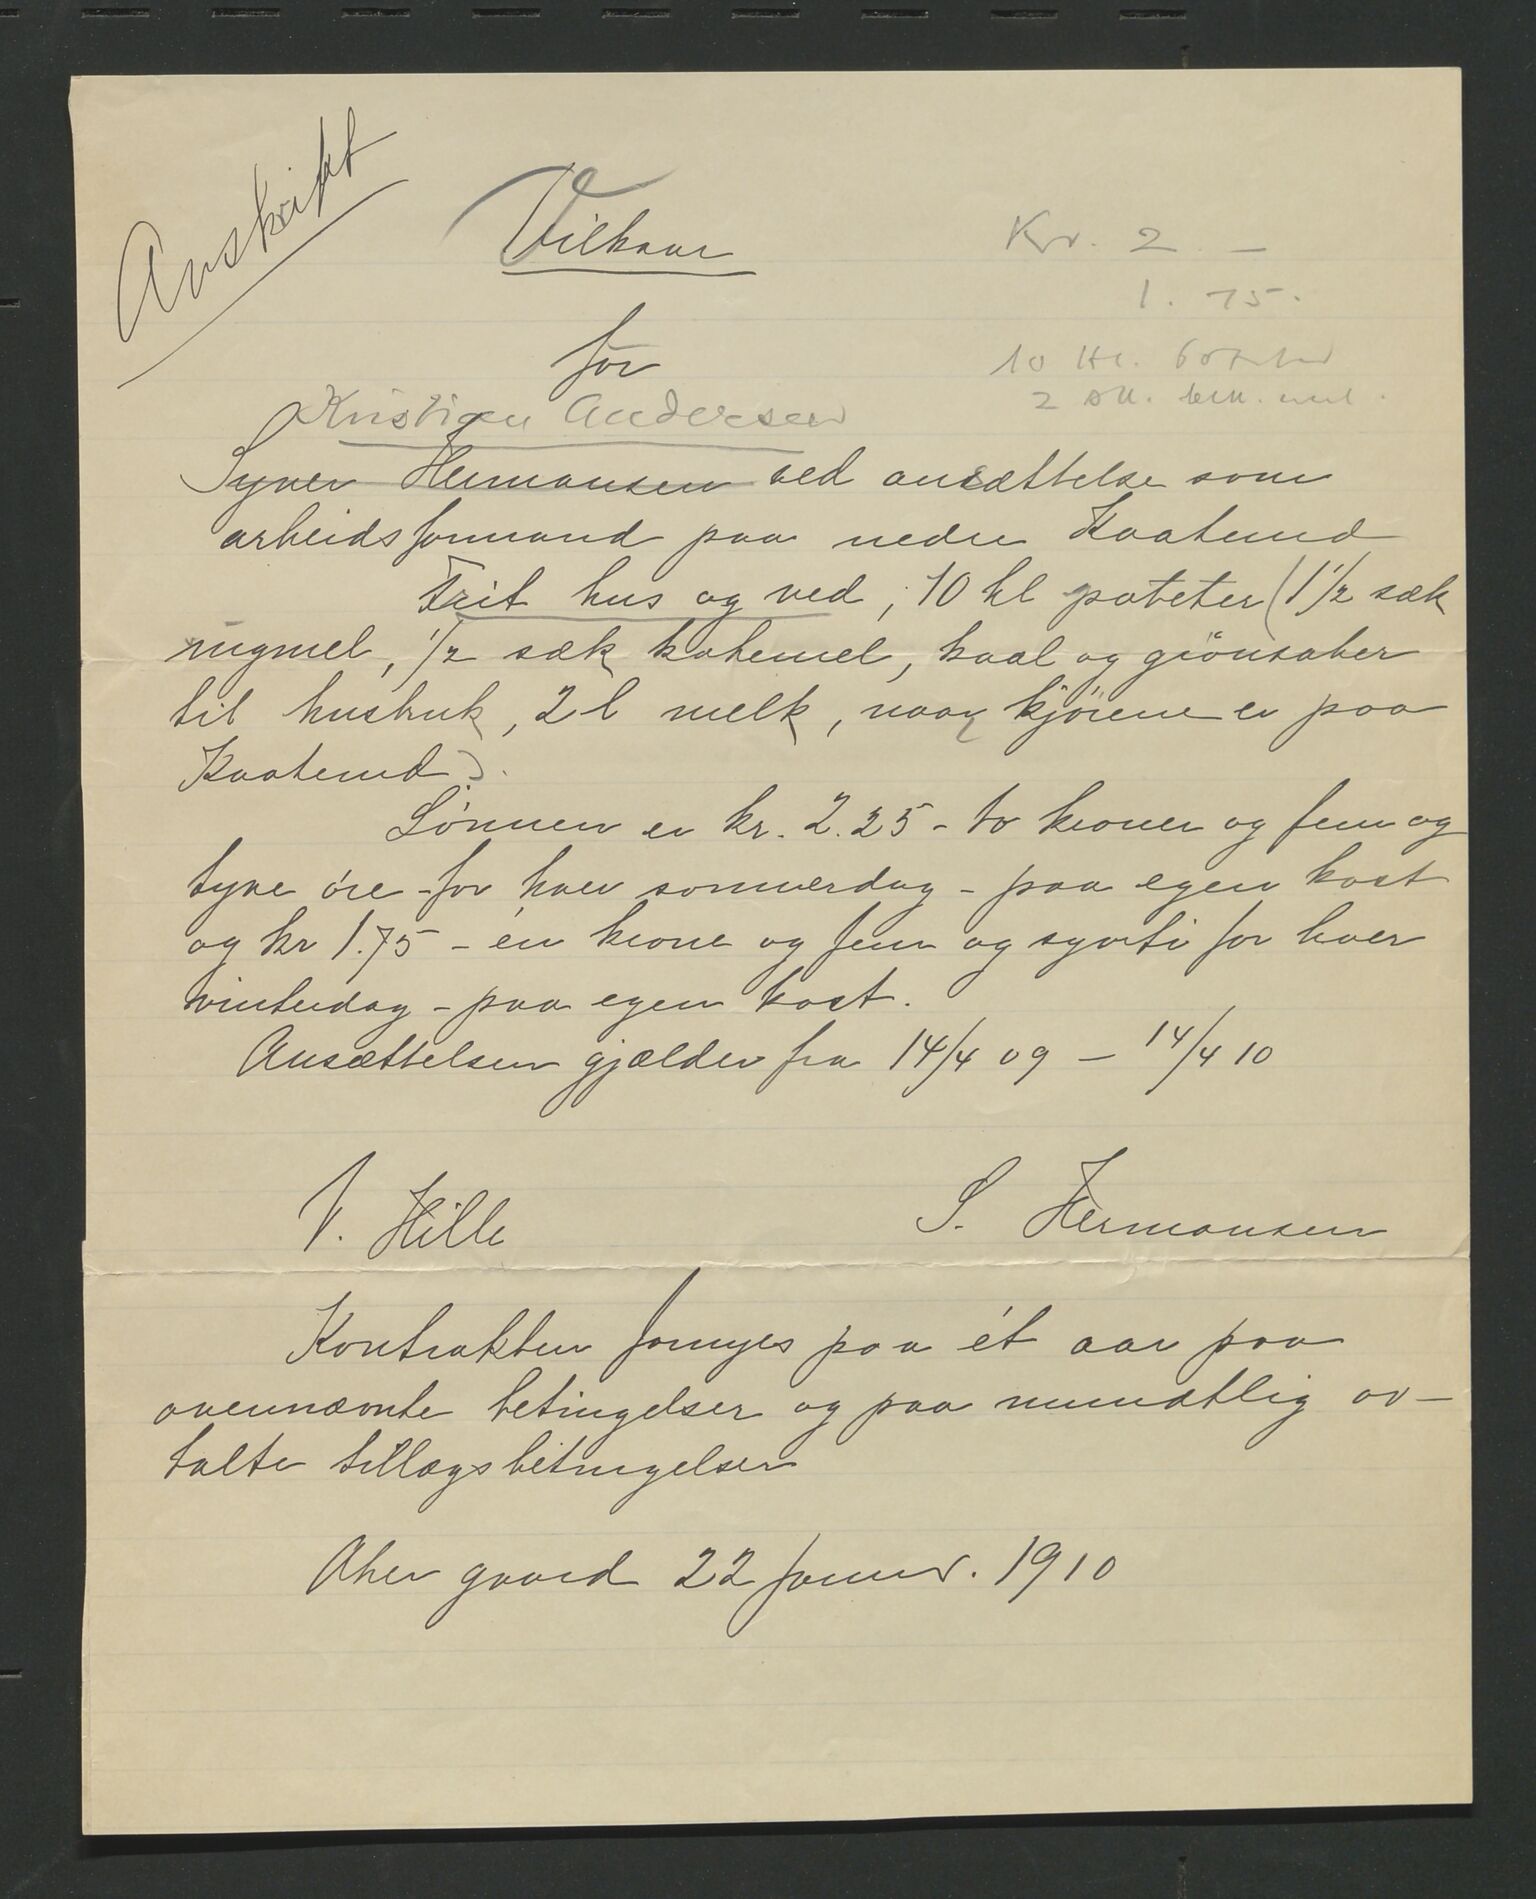 Avskrift
Vilkaar
for
Kr. 2 –
1. 75.
10 Hl. potet
2 skk.
Kristian Andersen
Syver Hermansen ved ansættelse som
arbeidsformand paa nedre Kaaterud
Frit hus og ved, 10 hl poteter (1 1/2 sæk
rugmel, 1/2 sæk havremel, kaal og grönsaker
til husbruk, 2 l melk, naar kjörene er paa
Kaaterud).
Lönnen er kr. 2.25 - to kroner og fem og
tyve öre - for hver sommerdag - paa egen kost
og kr 1.75 - én krone og fem og sytti for hver
vinterdag - paa egen kost.
Ansættelsen gjælder fra 14/4 09 – 14/4 10
V. Hille
S. Hermansen
Kontrakten fornyes paa ét aar paa
ovennævnte betingelser og paa mundtlig av-
talte tillægsbetingelser
Aker gaard 22 januar. 1910